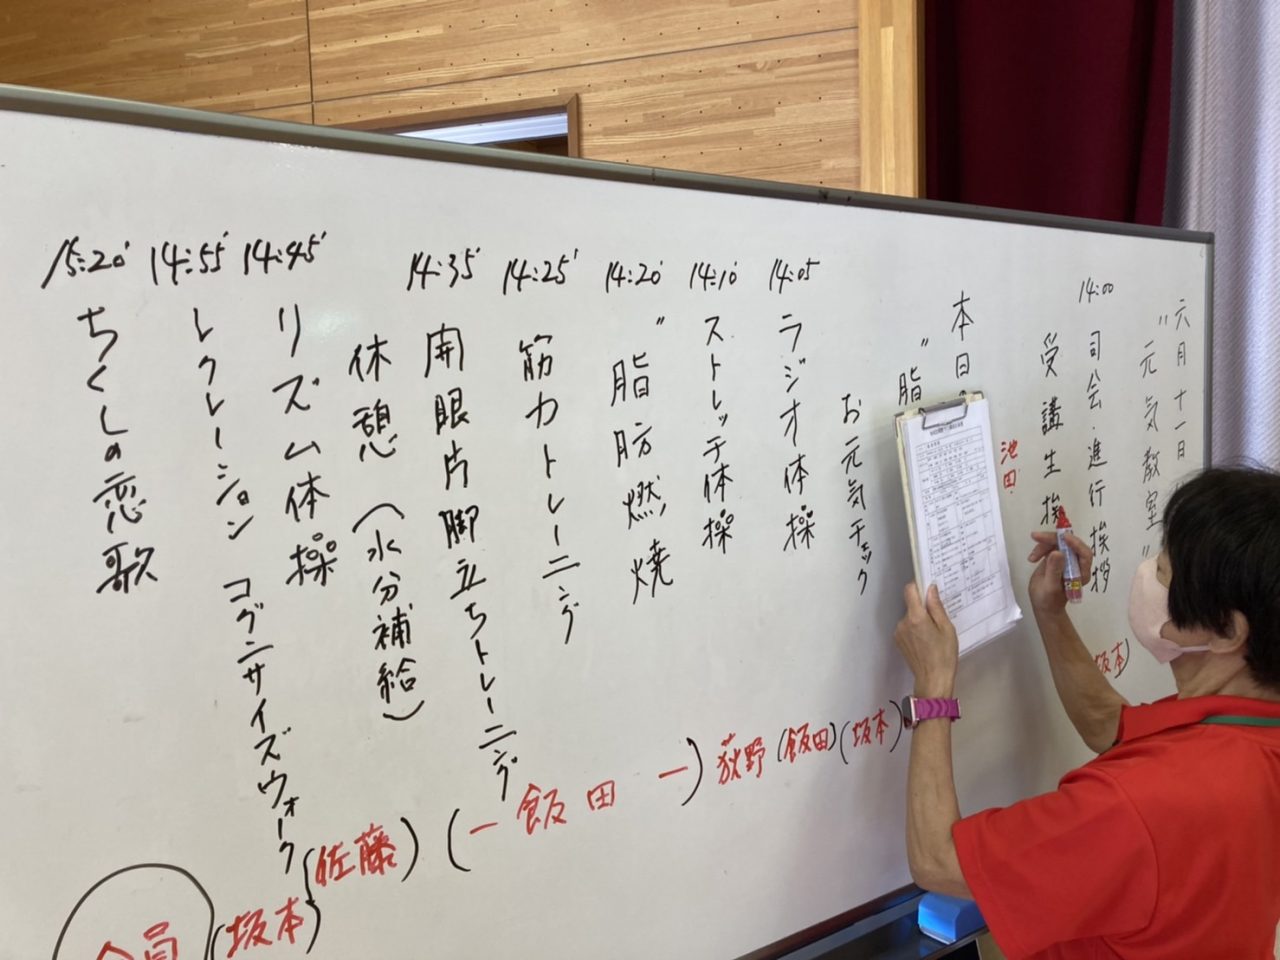 六月十一日
"元気教室"
14:00
司会・進行挨拶
坂本)
受講生挨
池田
本日
"脂
お元気チェック
14:05
ラジオ体操
(坂本)
14:10
ストレッチ体操
(飯田)
14:20
"脂肪燃焼
荻野
14:25
筋力トレーニング
14:35
開眼片脚立ちトレーニング
(ー飯田ー)
休憩 (水分補給)
14:45
リズム体操
(佐藤)
14:55
レクレーション コグニサイズウォーク
(坂本)
15:20
ちくしの恋歌
全員